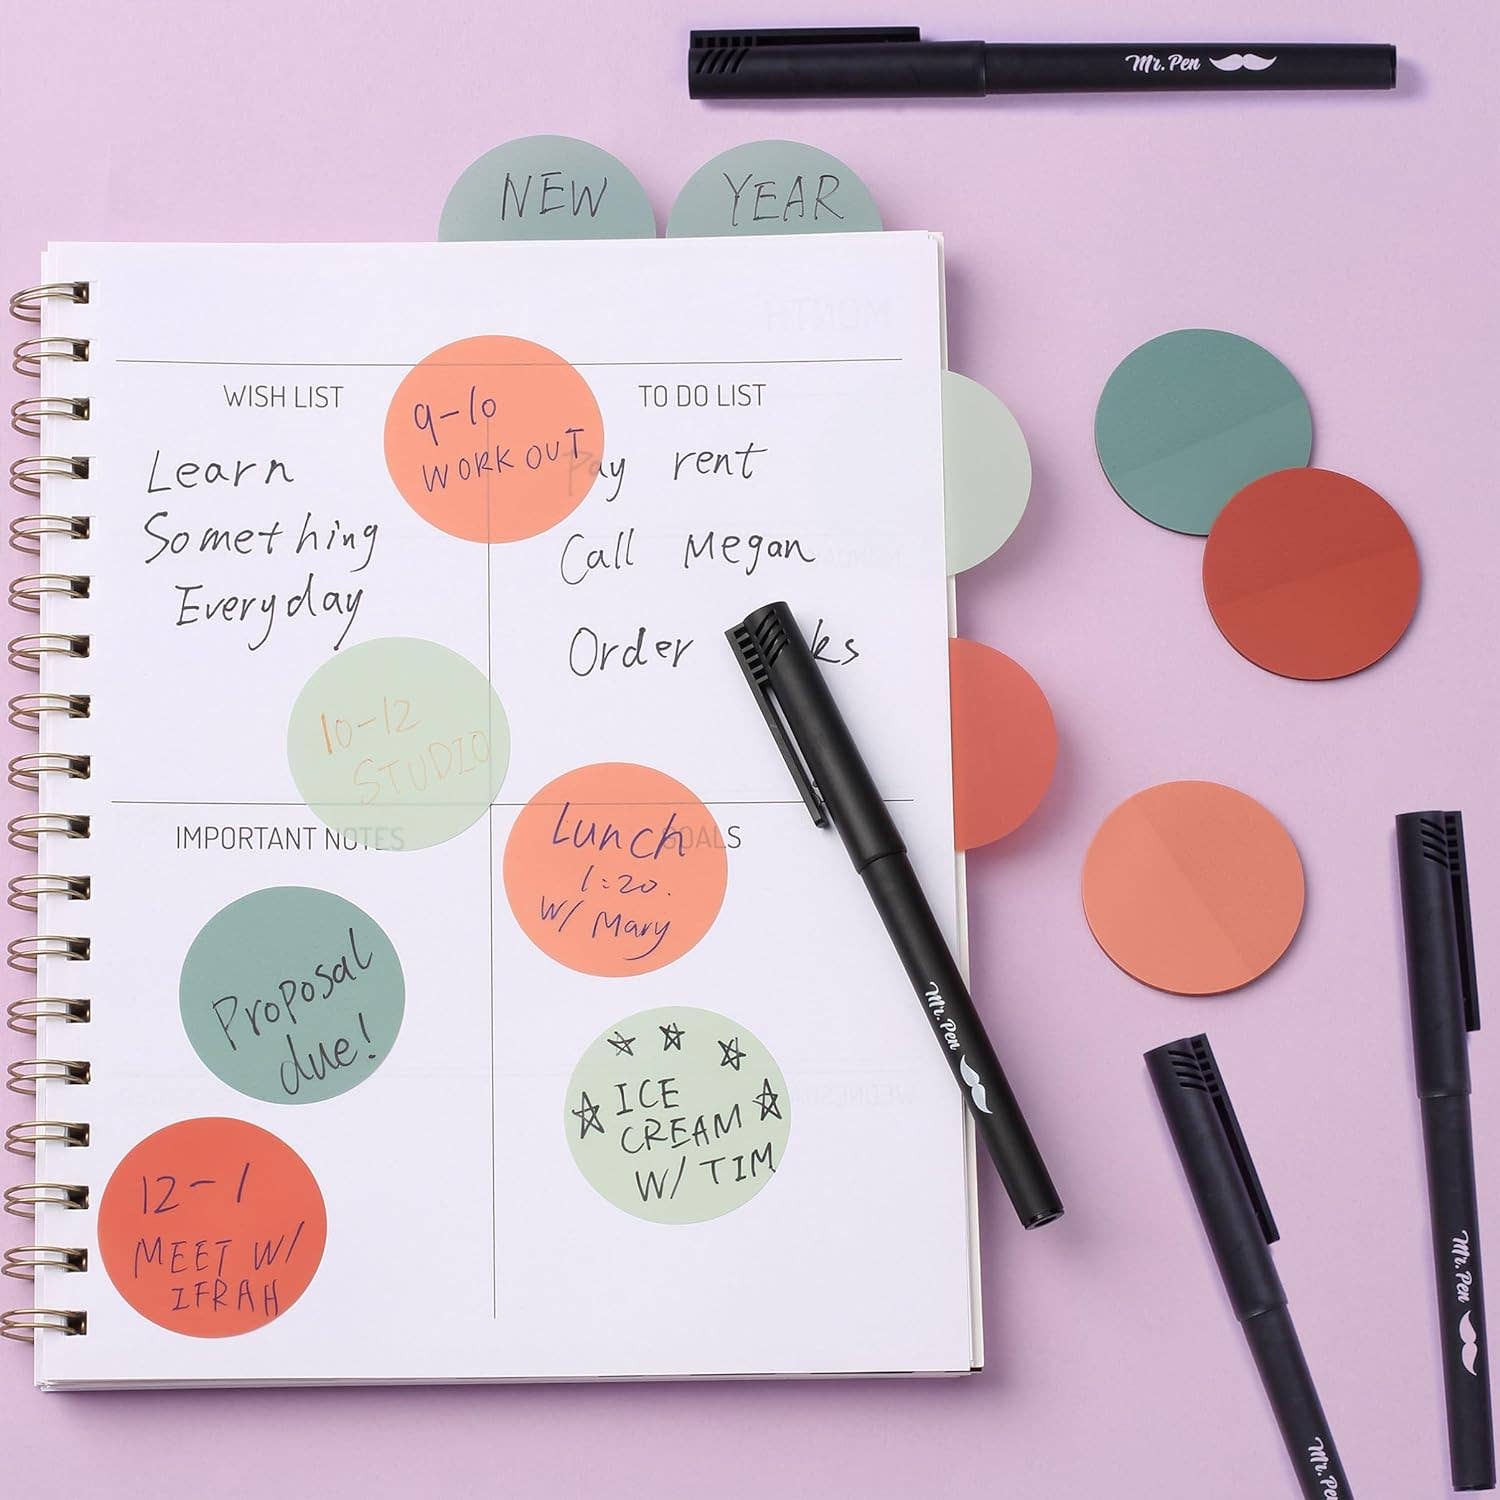 Mr. Pen
NEW
YEAR
MONTH
WISH LIST
TO DO LIST
9-10
WORK OUT
Learn
Something
Everyday
Pay rent
Call Megan
Order
10-12
STUDIO
IMPORTANT NOTES
GOALS
Lunch
1:20.
W/ Mary
Proposal
due!
ICE
CREAM
W/ TIM
12-1
MEET W/
IFRAH
Mr. Pen
Mr. Pen
Mr. Pen